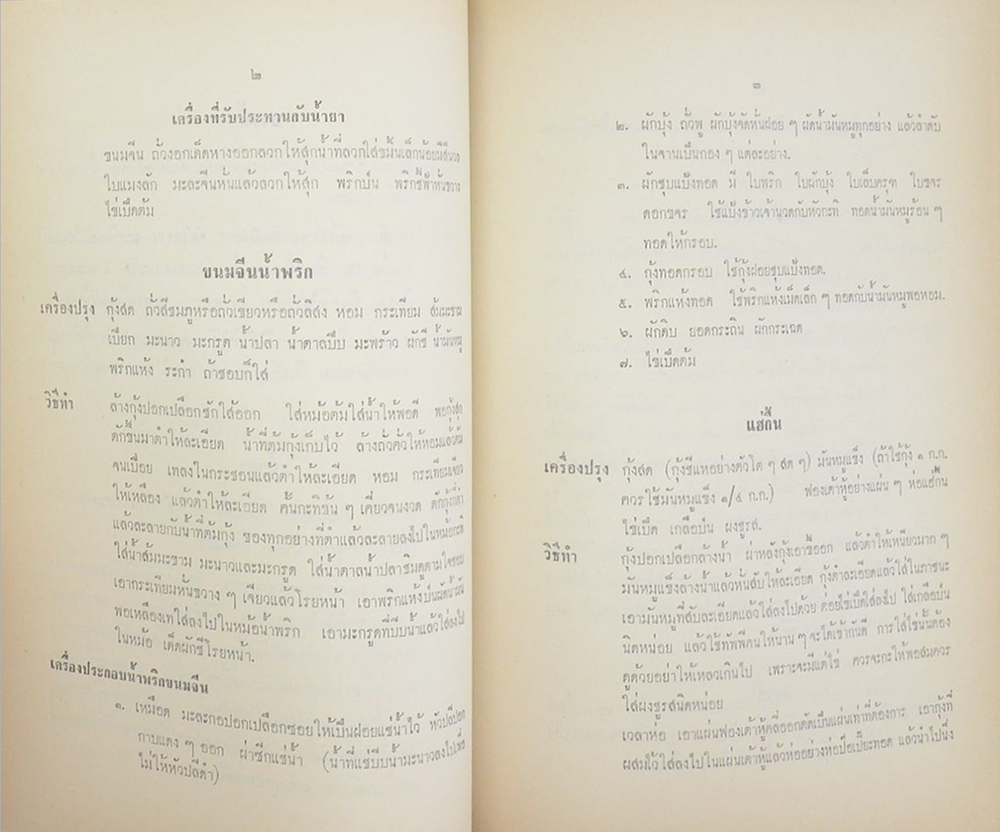 ๒
เครื่องที่รับประทานกับน้ำยา
ขนมจีน ถั่วงอกเด็ดหางออกลวกให้สุกน้ำที่ลวกใส่ขมิ้นเล็กน้อยมีสีนวล
ใบแมงลัก มะละจีนหั่นแล้วลวกให้สุก พริกป่น พริกชี้ฟ้าหั่นขวาง
ไข่เป็ดต้ม
ขนมจีนน้ำพริก
เครื่องปรุง กุ้งสด ถั่วลิสงหรือถั่วเขียวหรือถั่วลิสง หอม กระเทียม ส้มมะขาม
เปียก มะนาว มะกรูด น้ำปลา น้ำตาลปีบ มะพร้าว ผักชี น้ำมันหมู
พริกแห้ง ระกำ ถ้าชอบก็ใส่
วิธีทำ ล้างกุ้งปอกเปลือกชักไส้ออก ใส่หม้อต้มใส่น้ำให้พอดี พอกุ้งสุก
ตักขึ้นมาตำให้ละเอียด น้ำที่ต้มกุ้งเก็บไว้ ล้างถั่วคั่วให้หอมแล้วต้ม
จนเปื่อย เทลงในกระชอนแล้วตำให้ละเอียด หอม กระเทียมเจียว
ให้เหลือง แล้วตำให้ละเอียด คั้นกะทิข้น ๆ เคี่ยวจนงวด ตักกุ้งที่ตำ
แล้วละลายกับน้ำที่ต้มกุ้ง ของทุกอย่างที่ตำแล้วละลายลงไปในหม้อกะทิ
ใส่น้ำส้มมะขาม มะนาวและมะกรูด ใส่น้ำตาลน้ำปลาชิมดูตามใจชอบ
เอากระเทียมหั่นขวาง ๆ เจียวแล้วโรยหน้า เอาพริกแห้งป่นผัดน้ำมัน
พอเหลืองเทใส่ลงไปในหม้อน้ำพริก เอามะกรูดที่บีบน้ำแล้วใส่ลงไป
ในหม้อ เด็ดผักชีโรยหน้า.
เครื่องประกอบน้ำพริกขนมจีน
๑. เหมือด มะละกอปอกเปลือกซอยให้เป็นฝอยแช่น้ำไว้ หัวปลีปอก
กาบแดง ๆ ออก ผ่าซีกแช่น้ำ (น้ำที่แช่บีบน้ำมะนาวลงไปเพื่อ
ไม่ให้หัวปลีดำ)
๓
๒. ผักบุ้ง ถั่วพู ผักบุ้งจัดหั่นฝอย ๆ ผัดน้ำมันหมูทุกอย่าง แล้วลำดับ
ในจานเป็นกอง ๆ แต่ละอย่าง.
๓. ผักชุบแป้งทอด มี ใบพริก ใบผักบุ้ง ใบเล็บครุฑ ใบขจร
ดอกขจร ใช้แป้งข้าวเจ้านวดกับหัวกะทิ ทอดน้ำมันหมูร้อน ๆ
ทอดให้กรอบ.
๔. กุ้งทอดกรอบ ใช้กุ้งฝอยชุบแป้งทอด.
๕. พริกแห้งทอด ใช้พริกแห้งเม็ดเล็ก ๆ ทอดกับน้ำมันหมูพอหอม.
๖. ผักดิบ ยอดกระถิน ผักกระเฉด
๗. ไข่เป็ดต้ม
แฮ่กึ๊น
เครื่องปรุง กุ้งสด (กุ้งชีแหอย่างตัวโต ๆ สด ๆ) มันหมูแข็ง (ถ้าใช้กุ้ง ๑ ก.ก.
ควรใช้มันหมูแข็ง ๑/๔ ก.ก.) ฟองเต้าหู้อย่างแผ่น ๆ ห่อแฮ่กึ๊น
ไข่เป็ด เกลือป่น ผงชูรส.
วิธีทำ กุ้งปอกเปลือกล้างน้ำ ผ่าหลังกุ้งเอาขี้ออก แล้วตำให้เหนียวมาก ๆ
มันหมูแข็งล้างน้ำแล้วหั่นสับให้ละเอียด กุ้งตำละเอียดแล้วใส่ในภาชนะ
เอามันหมูที่สับละเอียดแล้วใส่ลงไปด้วย ต่อยไข่เป็ดใส่ลงไป ใส่เกลือป่น
นิดหน่อย แล้วใช้ทัพพีคนให้นาน ๆ จะได้เข้ากันดี การใส่ไข่นั้นต้อง
ดูด้วยอย่าให้เหลวเกินไป เพราะจะมีแต่ไข่ ควรจะกะให้พอสมควร
ใส่ผงชูรสนิดหน่อย
เวลาห่อ เอาแผ่นฟองเต้าหู้คลี่ออกตัดเป็นแผ่นเท่าที่ต้องการ เอากุ้งที่
ผสมไว้ใส่ลงไปในแผ่นเต้าหู้แล้วห่ออย่างห่อปอเปี๊ยะทอด แล้วนำไปนึ่ง